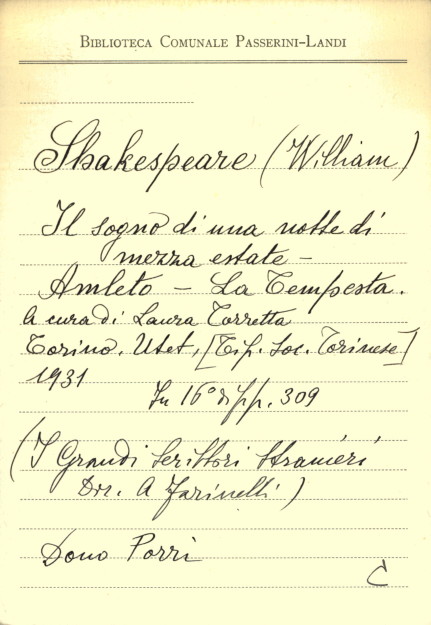 BIBLIOTECA COMUNALE PASSERINI-LANDI
Shakespeare (William)
Il sogno di una notte di
mezza estate -
Amleto - La Tempesta.
A cura di Laura Torretta
Torino, Utet, [Tip. Soc. Torinese]
1931
In 16° di pp. 309
(I Grandi Scrittori Stranieri
Dir. A Farinelli)
Dono Porri
C